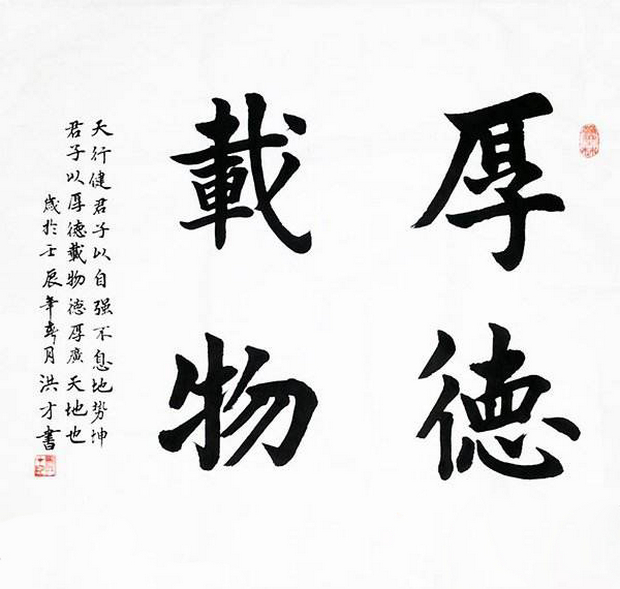 厚德
載物
天行健君子以自强不息地势坤
君子以厚德載物德厚廣天地也
歲於壬辰年春月洪才書